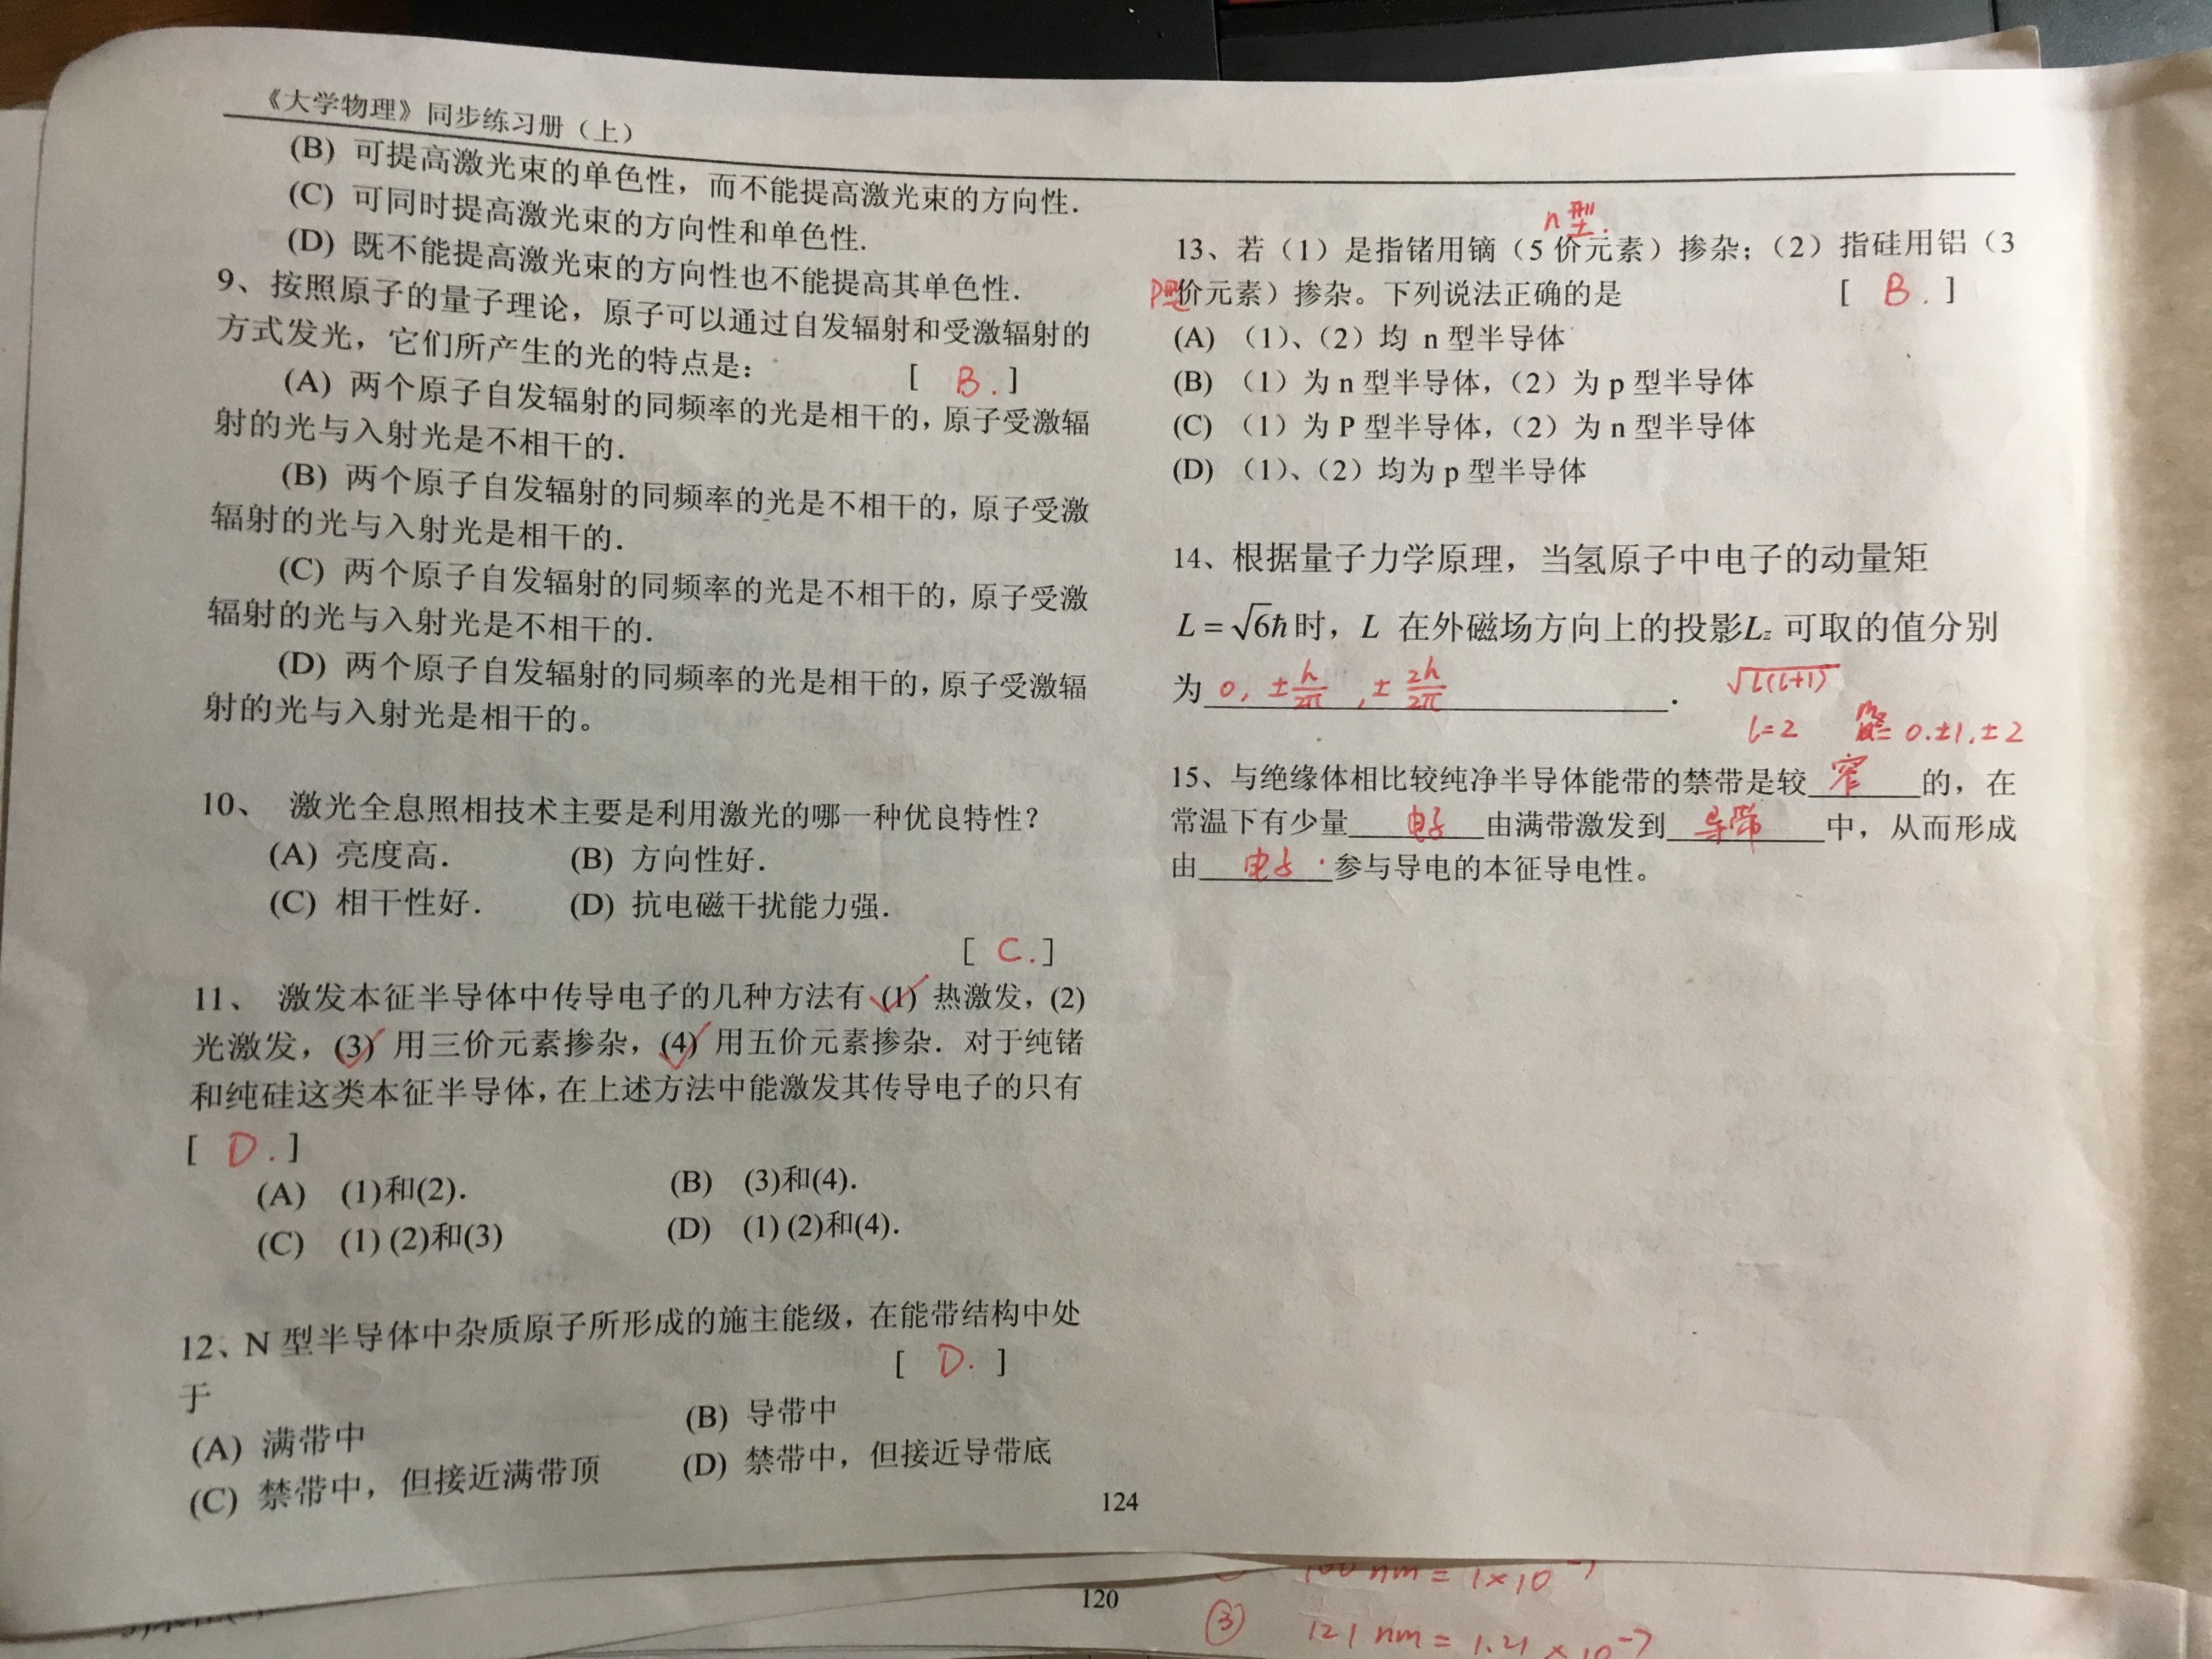 《大学物理》同步练习册（上）
(B) 可提高激光束的单色性，而不能提高激光束的方向性.
(C) 可同时提高激光束的方向性和单色性.
(D) 既不能提高激光束的方向性也不能提高其单色性.
9、按照原子的量子理论，原子可以通过自发辐射和受激辐射的
方式发光，它们所产生的光的特点是： [ B. ]
(A) 两个原子自发辐射的同频率的光是相干的，原子受激辐
射的光与入射光是不相干的.
(B) 两个原子自发辐射的同频率的光是不相干的，原子受激
辐射的光与入射光是相干的.
(C) 两个原子自发辐射的同频率的光是不相干的，原子受激
辐射的光与入射光是不相干的.
(D) 两个原子自发辐射的同频率的光是相干的，原子受激辐
射的光与入射光是相干的。
10、 激光全息照相技术主要是利用激光的哪一种优良特性？
(A) 亮度高. (B) 方向性好.
(C) 相干性好. (D) 抗电磁干扰能力强.
[ C. ]
11、 激发本征半导体中传导电子的几种方法有 (1) 热激发，(2)
光激发，(3) 用三价元素掺杂，(4) 用五价元素掺杂．对于纯锗
和纯硅这类本征半导体，在上述方法中能激发其传导电子的只有
[ D. ]
(A) (1)和(2). (B) (3)和(4).
(C) (1) (2)和(3) (D) (1) (2)和(4).
12、N 型半导体中杂质原子所形成的施主能级，在能带结构中处
于 [ D. ]
(A) 满带中 (B) 导带中
(C) 禁带中，但接近满带顶 (D) 禁带中，但接近导带底
n型.
13、若（1）是指锗用镝（5 价元素）掺杂；（2）指硅用铝（3
P型 价元素）掺杂。下列说法正确的是 [ B. ]
(A) （1）、（2）均 n 型半导体
(B) （1）为 n 型半导体，（2）为 p 型半导体
(C) （1）为 P 型半导体，（2）为 n 型半导体
(D) （1）、（2）均为 p 型半导体
14、根据量子力学原理，当氢原子中电子的动量矩
L = √6ħ 时，L 在外磁场方向上的投影Lz 可取的值分别
为 0, ± h/2π , ± 2h/2π . √l(l+1)
l=2 = 0.±1.±2
15、与绝缘体相比较纯净半导体能带的禁带是较 窄 的，在
常温下有少量 电子 由满带激发到 导带 中，从而形成
由 电子 参与导电的本征导电性。
124
120
100 nm = 1×10⁻⁷
③ 121 nm = 1.21 × 10⁻⁷